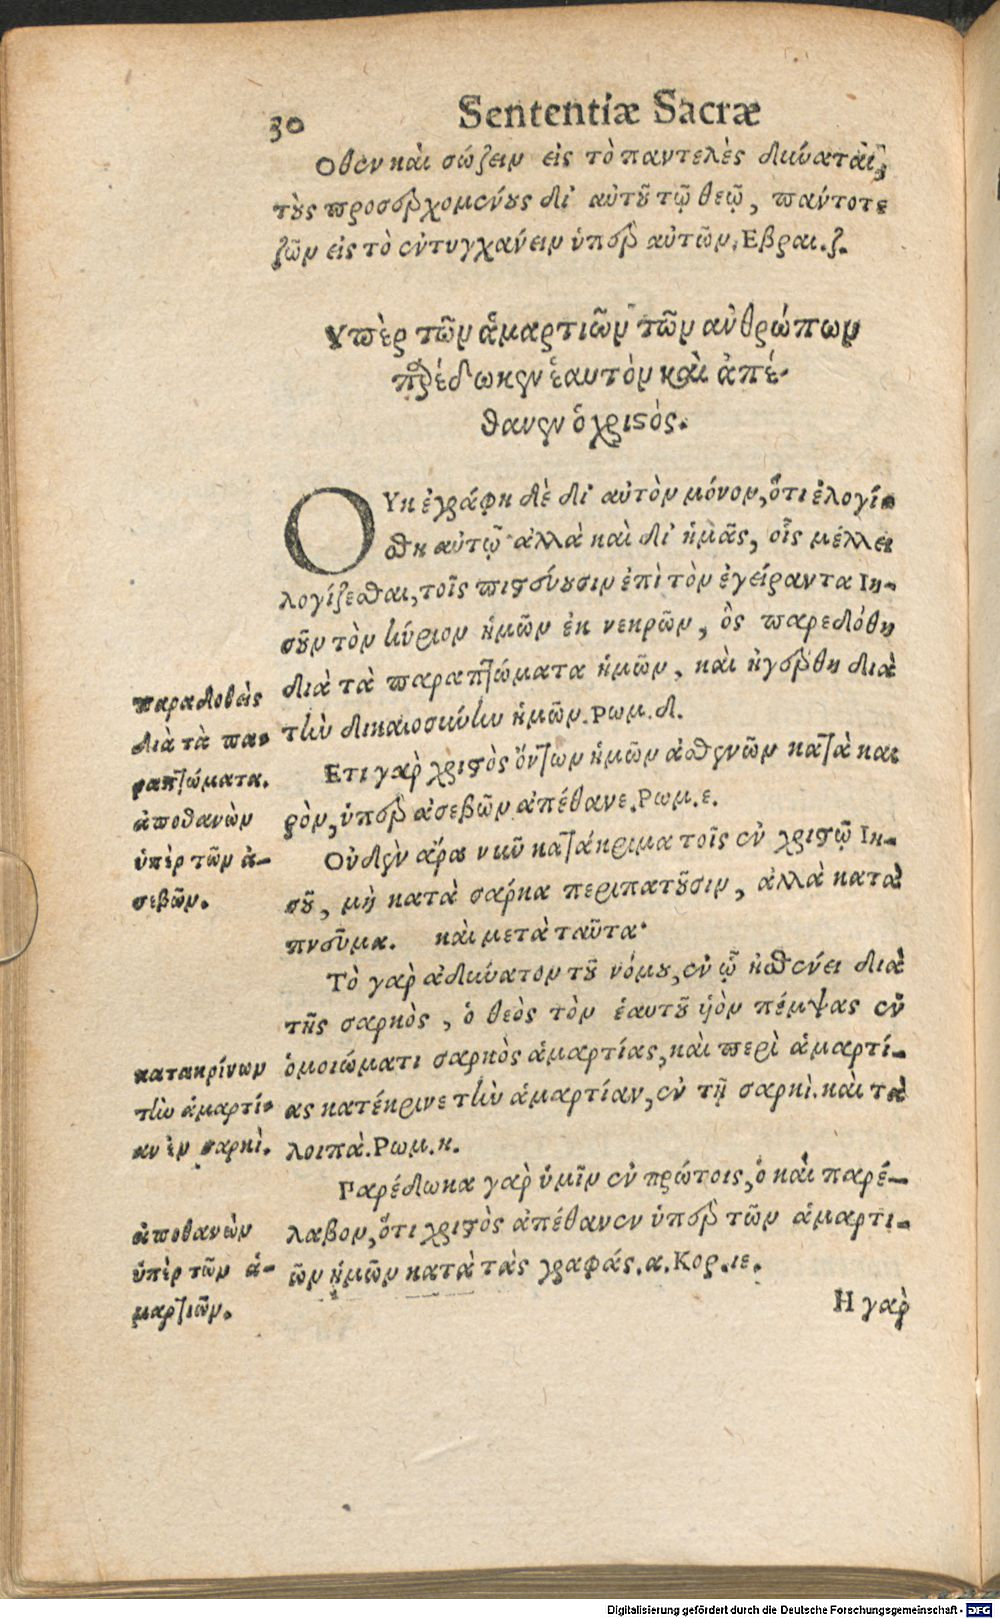 30 Sententiæ Sacræ
Οθεν καὶ σώζειν εἰς τὸ παντελὲς δύναται,
τοὺς προσερχομένους δι' αὐτοῦ τῷ θεῷ, πάντοτε
ζῶν εἰς τὸ ἐντυγχάνειν ὑπὲρ αὐτῶν. Εβραι. ζ.
Υπὲρ τῶν ἁμαρτιῶν τῶν ἀνθρώπων
παρέδωκεν ἑαυτὸν καὶ ἀπέ-
θανεν ὁ χριστὸς.
ΟΥκ ἐγράφη δὲ δι' αὐτὸν μόνον, ὅτι ἐλογί-
σθη αὐτῷ ἀλλὰ καὶ δι' ἡμᾶς, οἷς μέλλει
λογίζεσθαι, τοῖς πιστεύουσιν ἐπὶ τὸν ἐγείραντα Ιη-
σοῦν τὸν κύριον ἡμῶν ἐκ νεκρῶν, ὃς παρεδόθη
διὰ τὰ παραπτώματα ἡμῶν, καὶ ἠγέρθη διὰ
τὴν δικαιοσύνην ἡμῶν. Ρωμ. δ.
Ετι γὰρ χριστὸς ὄντων ἡμῶν ἀσθενῶν κατὰ και
ρὸν, ὑπὲρ ἀσεβῶν ἀπέθανε. Ρωμ. ε.
Οὐδὲν ἄρα νῦν κατάκριμα τοῖς ἐν χριστῷ Ιη-
σοῦ, μὴ κατὰ σάρκα περιπατοῦσιν, ἀλλὰ κατὰ
πνεῦμα. καὶ μετὰ ταῦτα·
Τὸ γὰρ ἀδύνατον τοῦ νόμου, ἐν ᾧ ἠσθένει διὰ
τῆς σαρκὸς, ὁ θεὸς τὸν ἑαυτοῦ υἱὸν πέμψας ἐν
ὁμοιώματι σαρκὸς ἁμαρτίας, καὶ περὶ ἁμαρτί-
ας κατέκρινε τὴν ἁμαρτίαν, ἐν τῇ σαρκὶ. καὶ τὰ
λοιπὰ. Ρωμ. η.
Παρέδωκα γὰρ ὑμῖν ἐν πρώτοις, ὁ καὶ παρέ-
λαβον, ὅτι χριστὸς ἀπέθανεν ὑπὲρ τῶν ἁμαρτι-
ῶν ἡμῶν κατὰ τὰς γραφάς. α. Κορ. ιε.
Η γὰρ
παραδοθεὶς
διὰ τὰ πα-
ραπτώματα.
ἀποθανὼν
ὑπὲρ τῶν ἀ-
σεβῶν.
κατακρίνων
τὴν ἁμαρτί-
αν ἐν σαρκὶ.
ἀποθανὼν
ὑπὲρ τῶν ἁ-
μαρτιῶν.
Digitalisierung gefördert durch die Deutsche Forschungsgemeinschaft - DFG